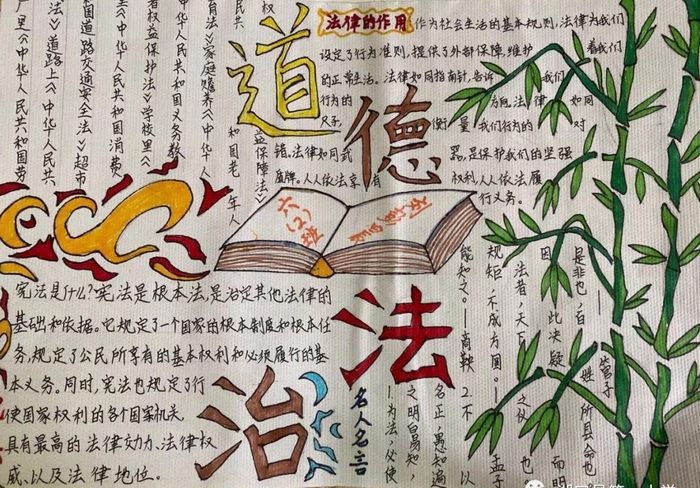 厂里《中华人民共和国劳
法》道路上《中华人民共
国道路交通安全法》超市
《中华人民共和国消费
者权益保护法》学校里《
中华人民共和国义务教
育法》家庭赡养《中华人
民共和国老年人
益保障法》
道
德
法
治
法律的作用
作为社会生活的基本规则,法律为我们
设定了行为准则,提供了外部保障,维护着我们
的正常生活。法律如同指南针,告诉我们
行为的方向,法律如同
尺子,衡量我们行为的对
错。法律如同武器,是保护我们的坚强
盾牌。人人依法享有权利,人人依法履
行义务。
六(2)班
宪法是什么?宪法是根本法,是治定其他法律的
基础和依据。它规定了一个国家的根本制度和根本任
务,规定了公民所享有的基本权利和必须履行的基
本义务。同时,宪法也规定了行
使国家权利的各个国家机关,
具有最高的法律效力、法律权
威、以及法律地位。
名人名言
1.为法,必使
之明白易知,
名正,愚知遍
能知之。—商鞅 2.不以
规矩,不成方圆。—孟子
法者,天下之仪也
因此决疑而明
是非也,百姓所县命也
——管子